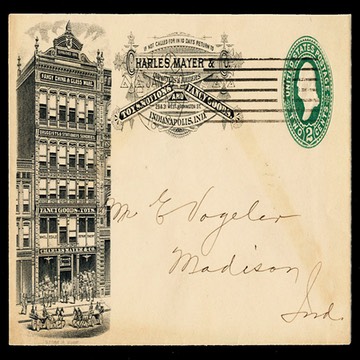 IF NOT CALLED FOR IN 10 DAYS RETURN TO
CHARLES MAYER & CO.
TOYS, NOTIONS AND FANCY GOODS.
29 & 31 WEST WASHINGTON ST.
INDIANAPOLIS, IND.
UNITED STATES POSTAGE
TWO CENTS
2 2
FANCY CHINA & GLASS WARE.
DRUGGISTS & STATIONERS SUNDRIES
FANCY GOODS. TOYS.
CHARLES MAYER & CO.
M E Vogeler
Madison
Ind.